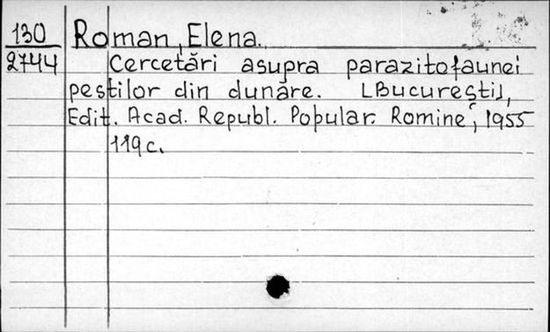 130 Roman, Elena.
2744 Cercetări asupra parazitofaunei
peștilor din dunăre. [București],
Edit. Acad. Republ. Popular. Romîne, 1955
119 c.